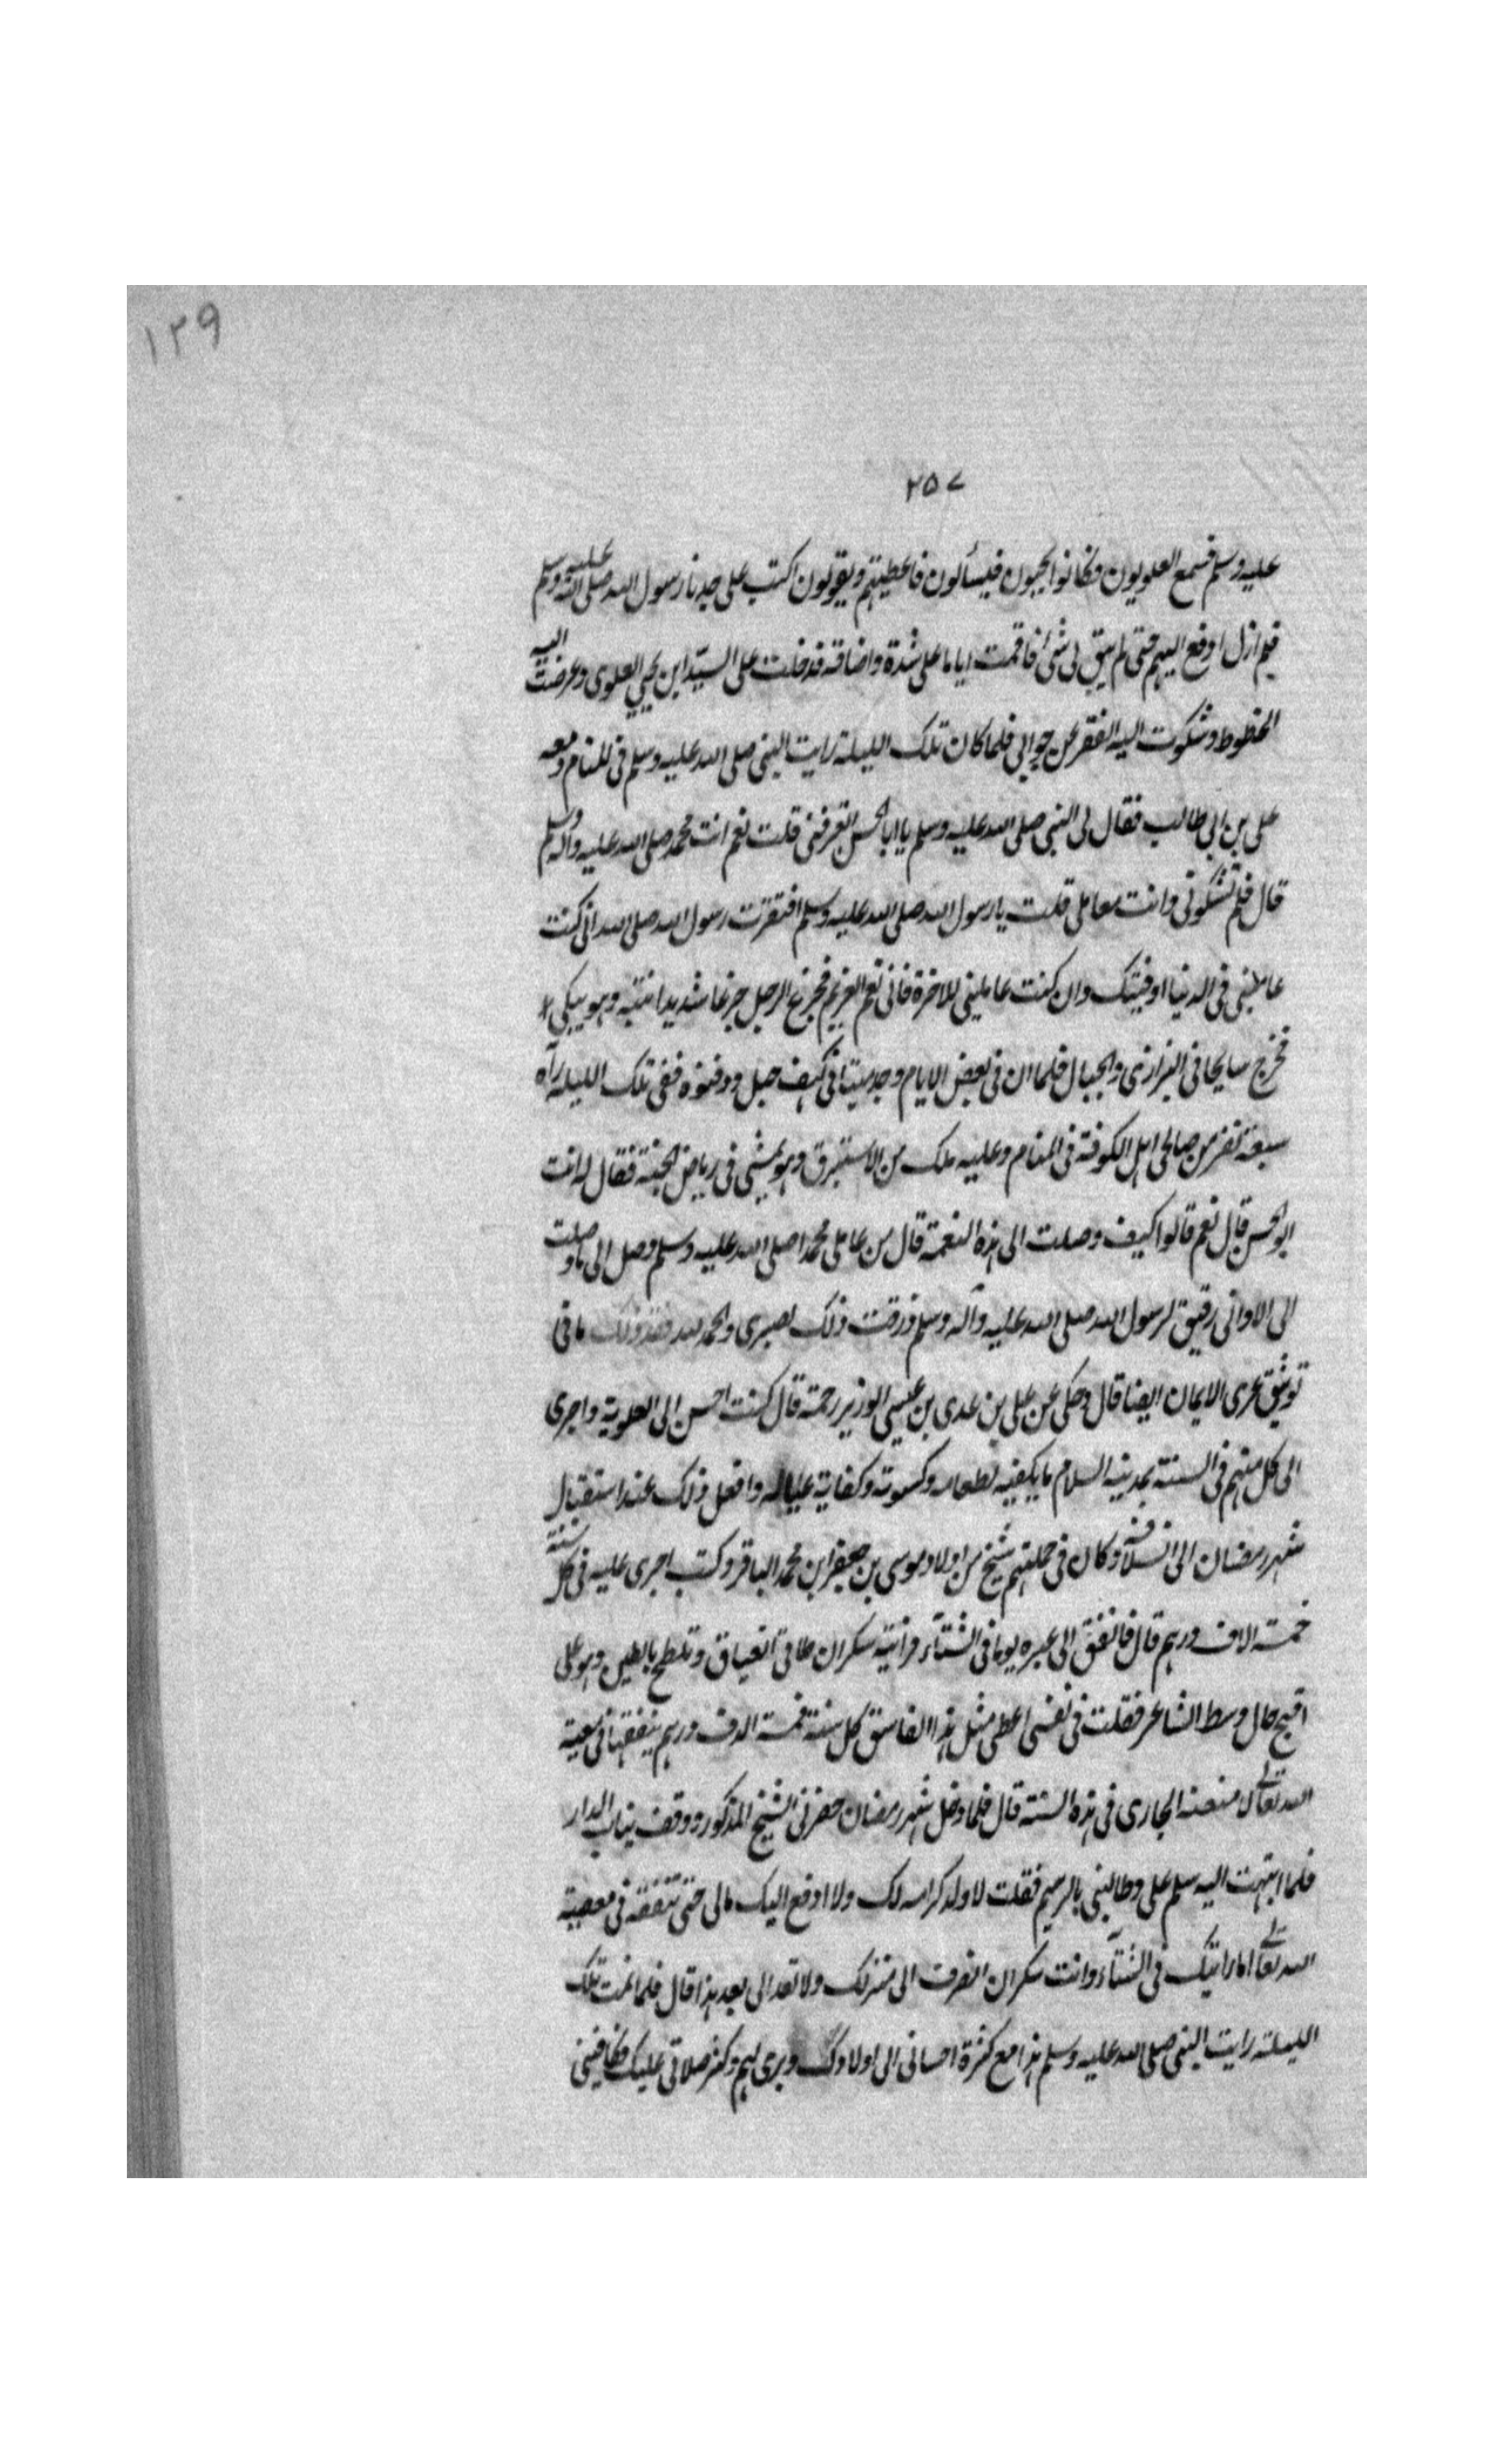 ١٢٩
٢٥٧
عليه وسلم فسمع العلويون فكانوا يجيبون فيسألون فاعطيتهم ويقولون اكتب على جدنا رسول الله صلى الله عليه وسلم
فلم ازل ادفع اليهم حتى لم يبق لى شئ فاقمت اياما على شدة واضاقة فدخلت على السيد ابن يحيى العلوى وعرضت اليه
الخطوط وشكوت اليه الفقر عن فلما كان تلك الليلة رايت النبى صلى الله عليه وسلم فى المنام ومعه
على بن ابى طالب فقال لى النبى صلى الله عليه وسلم يا ابا الحسن اتعرفنى قلت نعم انت محمد صلى الله عليه وآله وسلم
قال فلم تشكونى وانت معاملى قلت يا رسول الله صلى الله عليه وسلم افتقرت رسول الله صلى الله ان كنت
عاملتنى فى الدنيا اوفيتك وان كنت عاملينى للاخرة فانى نعم الغريم فجزع الرجل جزعا شديدا انتبه وهو يبكى
فخرج سايحا فى البرارى والجبال فلما ان فى بعض الايام وجد ميتا فى كهف جبل ودفنوه ففى تلك الليلة رآه
سبعة نفر من صالحى اهل الكوفة فى المنام وعليه ملك من الاستبرق وهو يمشى فى رياض الجنة فقال له انت
ابو الحسن قال نعم قالوا كيف وصلت الى هذه النعمة قال من عامل محمدا صلى الله عليه وسلم وصل الى ما وصلت
الى الا وانى رفيق لرسول الله صلى الله عليه وآله وسلم ورزقت ذلك بصبرى والحمد لله فقد ذلك ما فى
توثيق عرى الايمان ايضا قال وحكى عن على بن عدى بن عيسى الوزير رحمة قال كنت احسن الى العلوية واجرى
الى كل منهم فى السنة بمدينة السلام ما يكفيه لطعامه وكسوته وكفاية عياله وافعل ذلك عند استقبال
شهر رمضان الى انسلاخه وكان فى جملتهم شيخ من اولاد موسى بن جعفر ابن محمد الباقر وكنت اجرى عليه فى كل سنة
خمسة الاف درهم قال فاتفق الى عبره يوما فى الشتآء فرائيته سكران طافى العياق وتلطخ بالطين وهو على
اقبح حال وسط الشاعر فقلت فى نفسى اعطى مثل هذا الفاسق كل سنة خمسة الدف درهم ينفقها فى معصية
الله تعالى لا منعنه الجارى فى هذه السنة قال فلما دخل شهر رمضان حضرنى الشيخ المذكور ووقف بباب الدار
فلما انتهيت اليه سلم على وطالبنى بالرسم فقلت لا ولا كرامه لك ولا ادفع اليك مالى حتى تنفقه فى معصية
الله تعالى اما رايتك فى الشتآء وانت سكران انصرف الى منزلك ولا تعد الى بعد هذا قال فلما نمت تلك
الليلة رايت النبى صلى الله عليه وسلم هذا مع كثرة احسانى الى اولادك وبرى لهم وكثر صلاتى عليك فكافيتنى